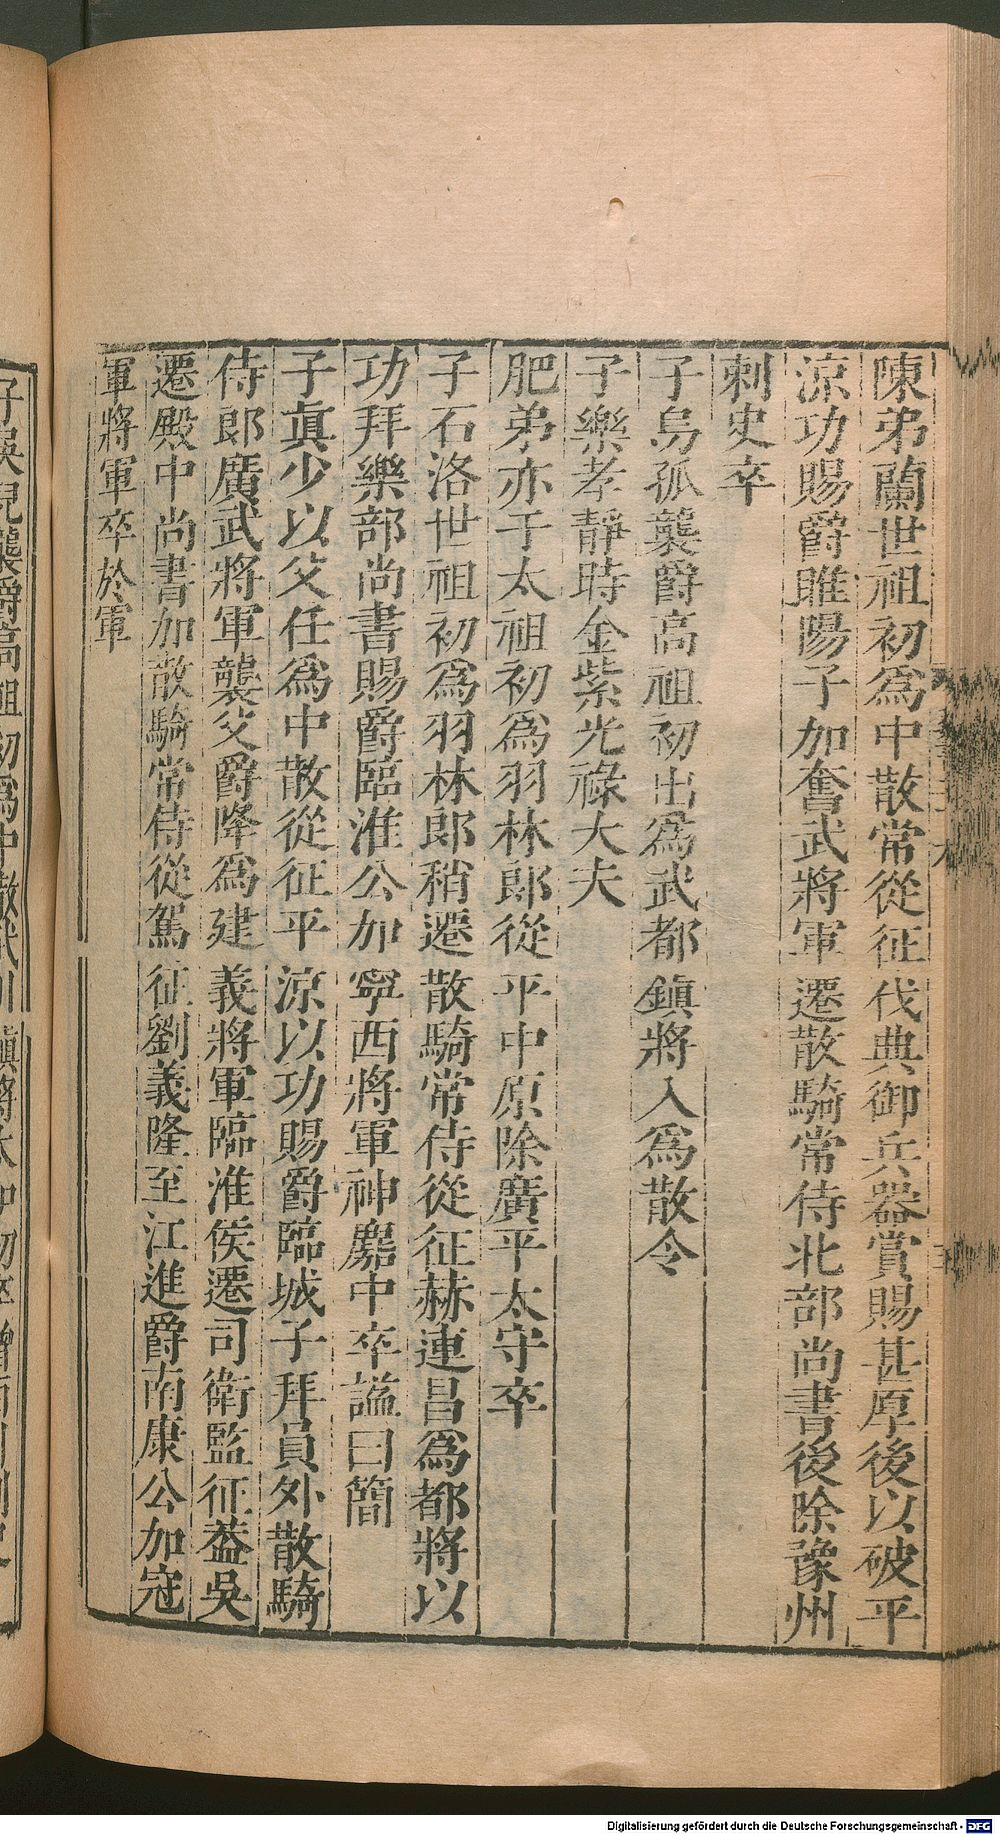 陳弟蘭世祖初爲中散常從征伐典御兵器賞賜甚厚後以破平
涼功賜爵睢陽子加奮武將軍遷散騎常侍北部尚書後除豫州
刺史卒
子烏孤襲爵高祖初出爲武都鎮將入爲散令
子樂孝靜時金紫光祿大夫
肥弟亦干太祖初爲羽林郎從平中原除廣平太守卒
子石洛世祖初爲羽林郎稍遷散騎常侍從征赫連昌爲都將以
功拜樂部尚書賜爵臨淮公加寧西將軍神䴥中卒謚曰簡
子眞少以父任爲中散從征平涼以功賜爵臨城子拜員外散騎
侍郎廣武將軍襲父爵降爲建義將軍臨淮侯遷司衛監征蓋吳
遷殿中尚書加散騎常侍從駕征劉義隆至江進爵南康公加冠
軍將軍卒於軍
子吳兒襲爵高祖初爲中散武川鎮將太和初卒贈
Digitalisierung gefördert durch die Deutsche Forschungsgemeinschaft - DFG